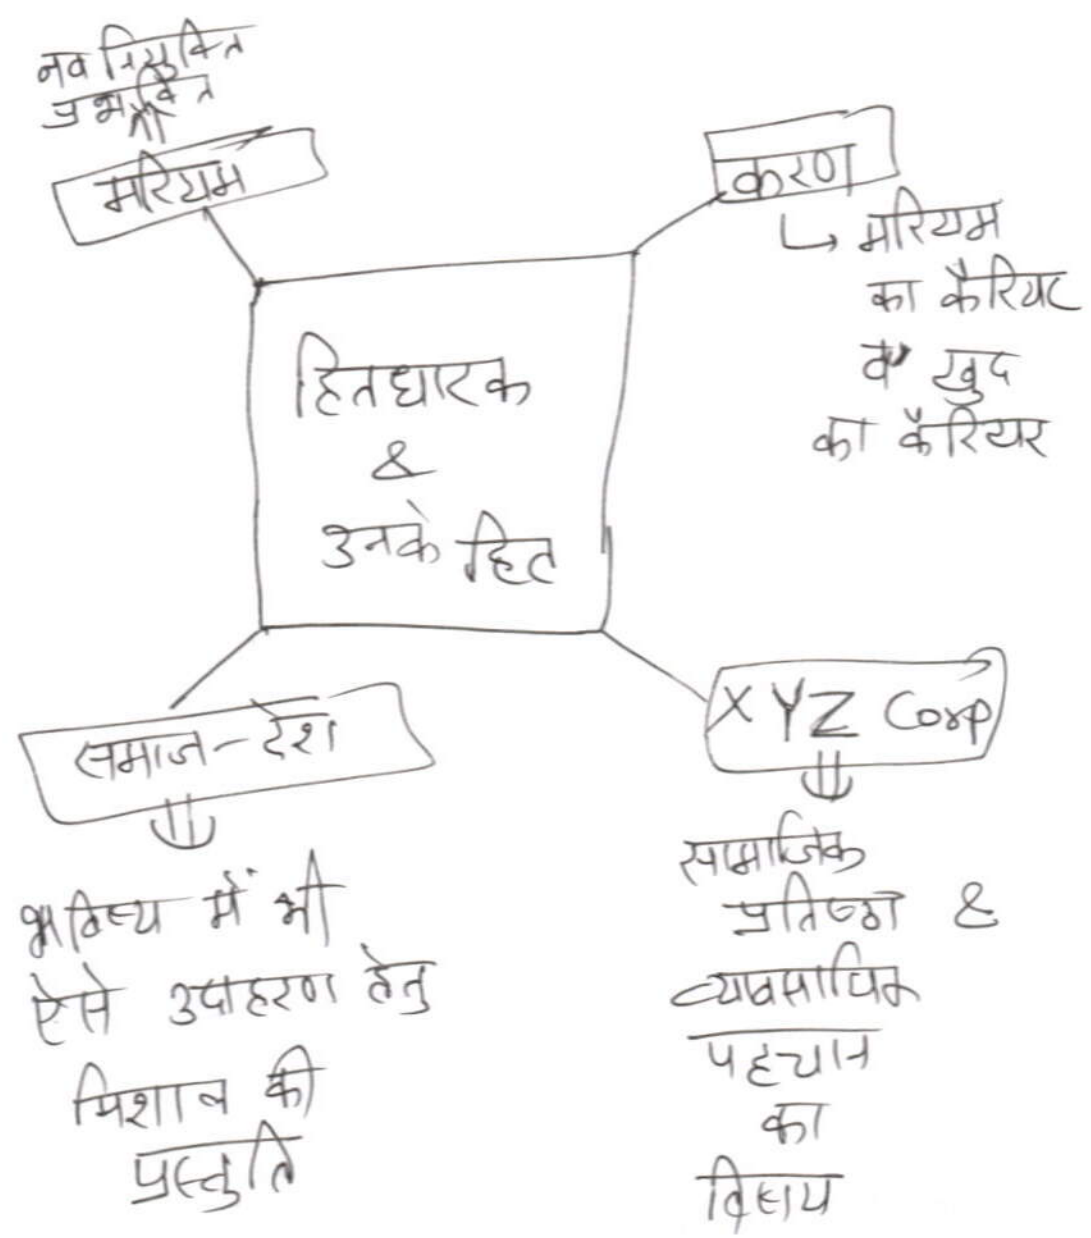 नव नियुक्ति
मरियम
करण
↳ मरियम
का कैरियर
व खुद
का कैरियर
हितधारक
&
उनके हित
समाज - देश
भविष्य में भी
ऐसे उदाहरण हेतु
मिशाल की
प्रस्तुति
XYZ Corp
सामाजिक
प्रतिष्ठा &
व्यावसायिक
पहचान
का
विषय